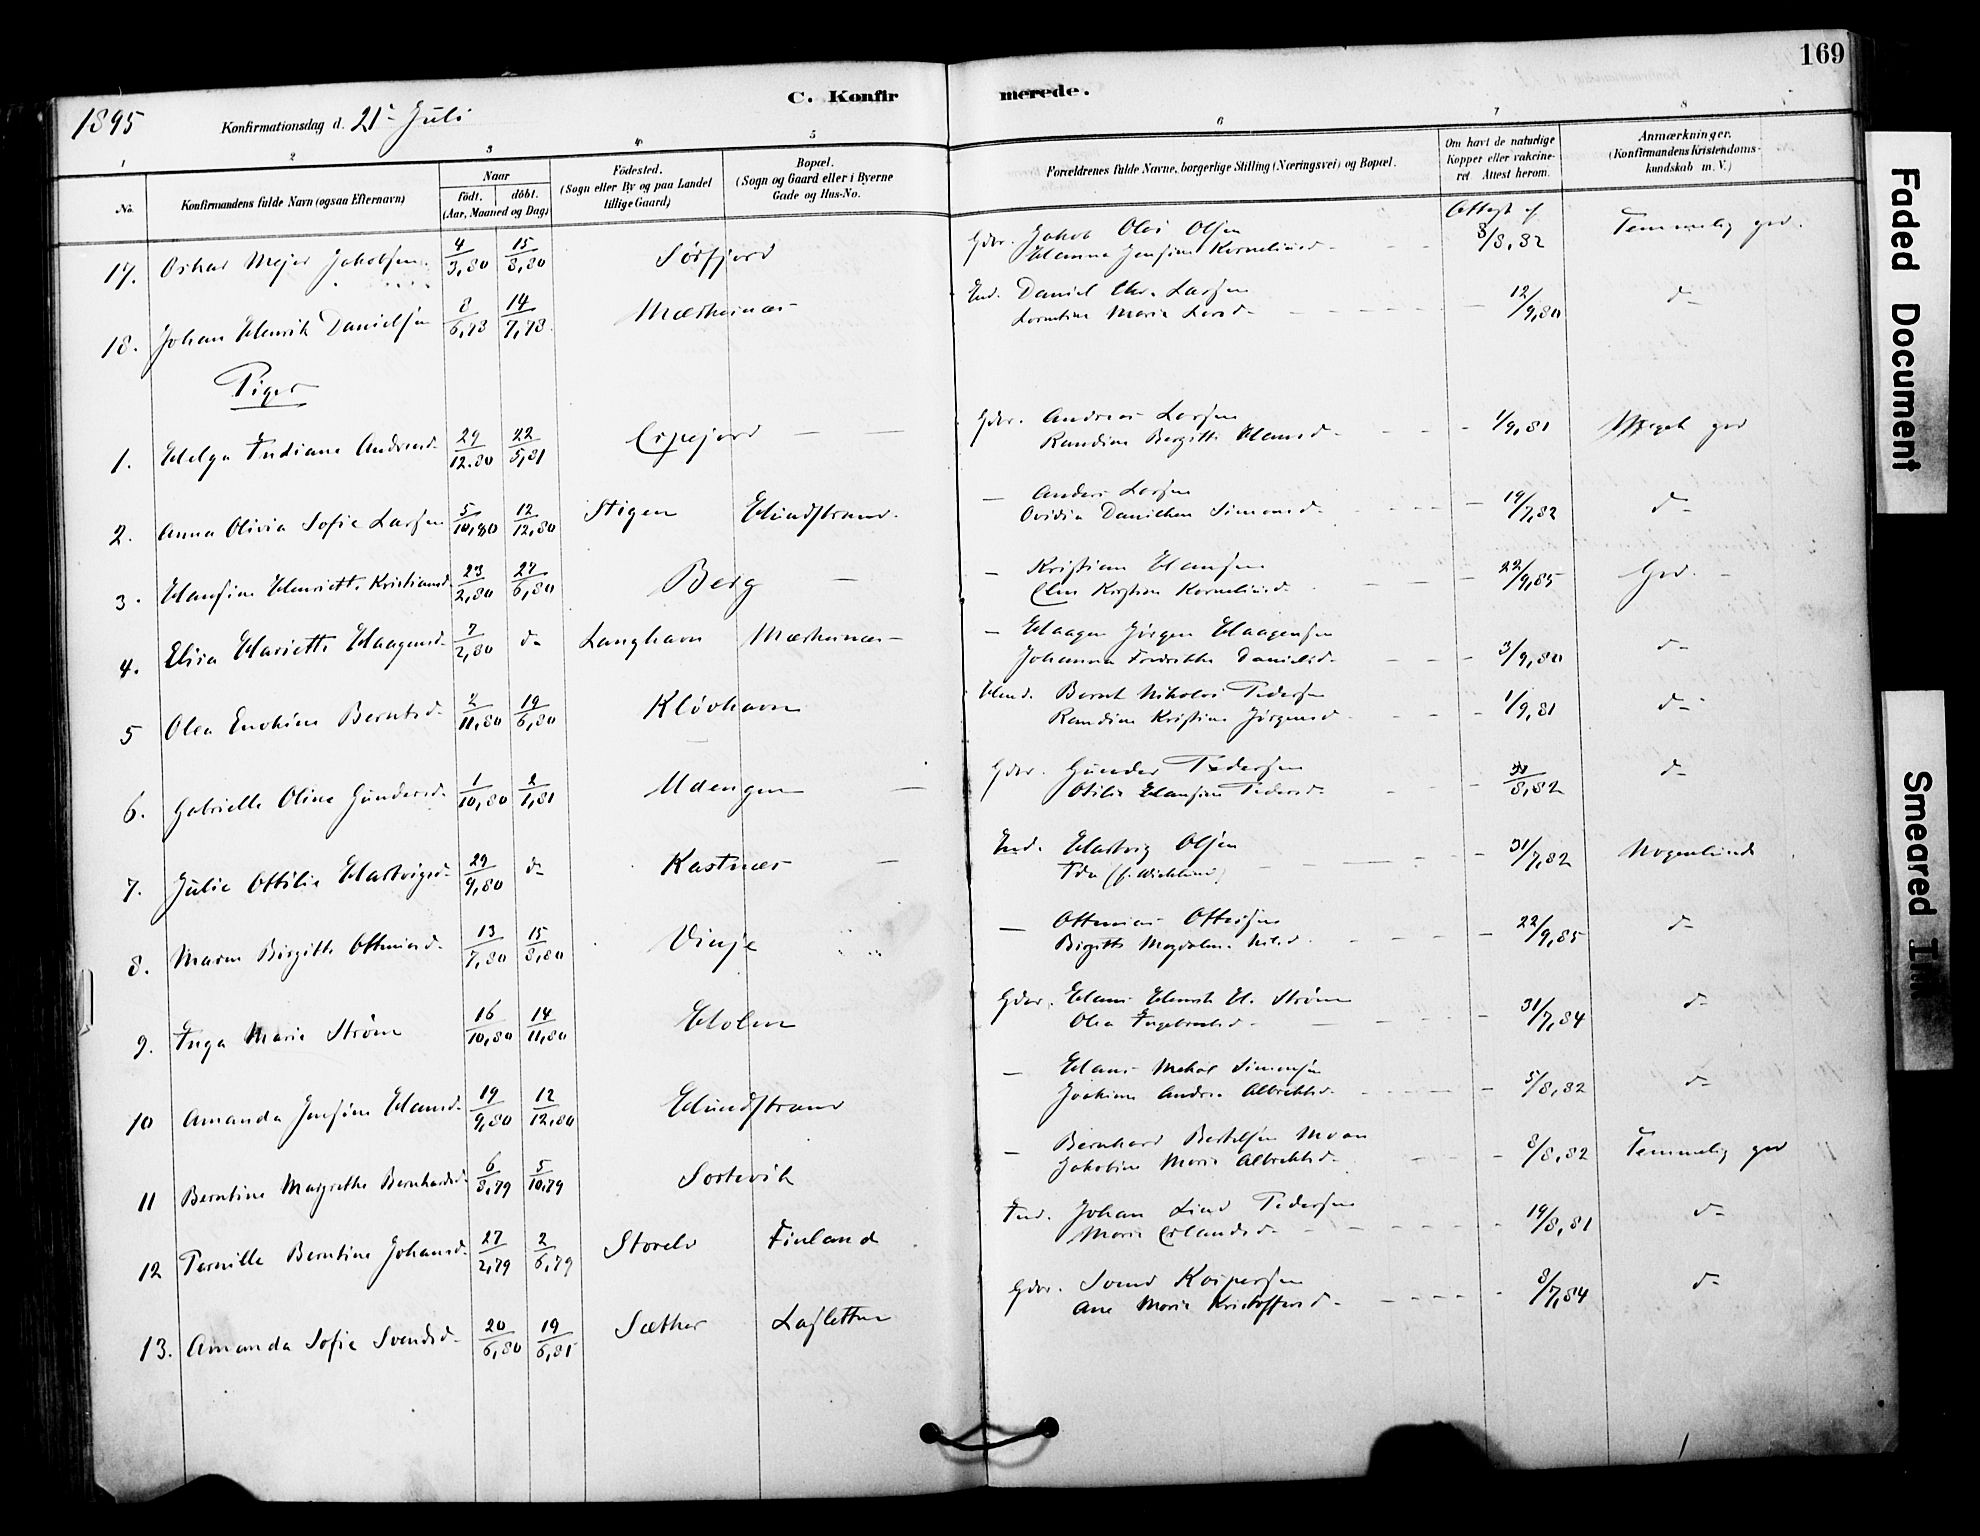 169
1895 Konfirmationsdag d. 21 Juli C. Konfirmerede.
1 2 3 4 5 6 7 8
No. Konfirmandens fulde Navn (ogsaa Efternavn) Naar født. døbt. (Aar, Maaned og Dag) Fødested. (Sogn eller By og paa Landet tillige Gaard) Bopæl. (Sogn og Gaard eller i Byerne Gade og Hus-No. Forældrenes fulde Navne, borgerlige Stilling (Næringsvei) og Bopæl. Om havt de naturlige Kopper eller vakcineret Attest herom. Anmærkninger. (Konfirmandens Kristendomskundskab m. V.)
17. Oskar Mejer Jakobsen 4/3,80 15/8,80 Sørfjord Gdbr. Jakob Olai Olsen Attest af 8/8,82 Temmelig god.
Hanna Jensine Korneliusd.
18. Johan Henrik Danielsen 8/6,78 14/7,78 Mærkesnæs Ind. Daniel Chr. Larsen 12/9,80 d-
Lorentine Marie Larsd.
Piger
1. Helga Indiane Andreasd. 29/12.80 22/5,81 Espejord — — Gdbr. Andreas Larsen 1/9,81 Meget god
Randine Bergitte Hansd.
2. Anna Olivia Sofie Larsen 5/10,80 12/12,80 Stigen Hundstrand. — Anders Larsen 19/7,82 d-
Ovidia Danithea Simonsd.
3. Hansine Henriette Kristiansd. 23/2,80 27/6,80 Berg — — Kristian Hansen 22/9,85 God.
Elen Kirstine Korneliusd.
4. Elisa Hariette Haagensd. 7/2,80 d- Langhavn Mærkesnæs — Haagen Jørgen Haagensen 3/9,80 d-
Johanna Fredrikke Danielsd.
5 Olea Enokine Berntsd. 2/11,80 19/6,80 Kløvhavn Husmd. Bernt Nikolai Pedersen 1/9,81 d-
Randine Kristine Jørgensd.
6. Gabrielle Oline Gundersd. 1/10,80 2/1,81 Udengen — Gdbr. Gunder Pedersen /8,82 d-
Otilie Hansine Pedersd.
7. Julie Ottilie Hartvigsd. 29/9,80 d- Kastnæs — Ind. Hartvig Olsen 31/7,82 Nogenlunde
Ida (f. Wicklund)
8. Maren Birgitte Ottmiasd. 13/7,80 15/8,80 Vinje — Ottmias Ottesen 22/9,85 d-
Birgitte Magdalena Nilsd.
9. Inga Marie Strøm 16/10,80 14/11,80 Holm Gdbr. Hans Henrik H. Strøm 31/7,84 d-
Olea Ingebrotsd.
10 Amanda Jensine Hansd. 19/9,80 12/12,80 Hundstrand — Hans Mekal Simonsen 5/8,82 d-
Joakime Andrea Albrektsd.
11 Berntine Margrethe Bernhardsd. 6/8,79 5/10,79 Sortevik — Bernhard Bertelsen Moan 8/8,82 Temmelig god
Jakobine Marie Albrektsd.
12 Pernille Berntine Johansd. 27/2,79 2/6,79 Storelv Finland Ind. Johan Lind Pedersen 19/8,81 d-
Marie Erlandsd.
13. Amanda Sofie Svendsd. 20/6,80 19/6,81 Sæther Laksletten Gdbr. Svend Kaspersen 8/7,84 d-
Ane Marie Kristoffersd.
Faded Document
Smeared Ink